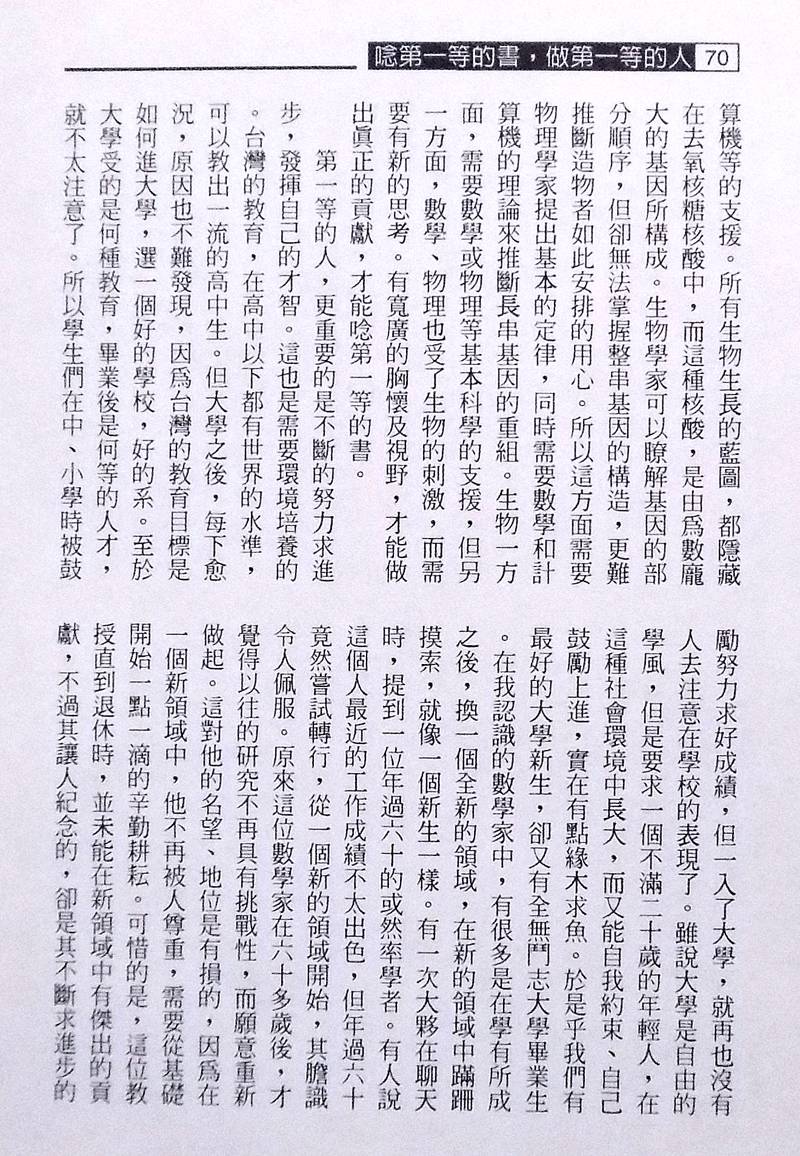 唸第一等的書，做第一等的人 70
算機等的支援。所有生物生長的藍圖，都隱藏
在去氧核糖核酸中，而這種核酸，是由爲數龐
大的基因所構成。生物學家可以瞭解基因的部
分順序，但卻無法掌握整串基因的構造，更難
推斷造物者如此安排的用心。所以這方面需要
物理學家提出基本的定律，同時需要數學和計
算機的理論來推斷長串基因的重組。生物一方
面，需要數學或物理等基本科學的支援，但另
一方面，數學、物理也受了生物的刺激，而需
要有新的思考。有寬廣的胸懷及視野，才能做
出眞正的貢獻，才能唸第一等的書。
第一等的人，更重要的是不斷的努力求進
步，發揮自己的才智。這也是需要環境培養的
。台灣的教育，在高中以下都有世界的水準，
可以教出一流的高中生。但大學之後，每下愈
況，原因也不難發現，因爲台灣的教育目標是
如何進大學，選一個好的學校，好的系。至於
大學受的是何種教育，畢業後是何等的人才，
就不太注意了。所以學生們在中、小學時被鼓
勵努力求好成績，但一入了大學，就再也沒有
人去注意在學校的表現了。雖說大學是自由的
學風，但是要求一個不滿二十歲的年輕人，在
這種社會環境中長大，而又能自我約束、自己
鼓勵上進，實在有點緣木求魚。於是乎我們有
最好的大學新生，卻又有全無鬥志大學畢業生
。在我認識的數學家中，有很多是在學有所成
之後，換一個全新的領域，在新的領域中蹣跚
摸索，就像一個新生一樣。有一次大夥在聊天
時，提到一位年過六十的或然率學者。有人說
這個人最近的工作成績不太出色，但年過六十
竟然嘗試轉行，從一個新的領域開始，其膽識
令人佩服。原來這位數學家在六十多歲後，才
覺得以往的研究不再具有挑戰性，而願意重新
做起。這對他的名望、地位是有損的，因爲在
一個新領域中，他不再被人尊重，需要從基礎
開始一點一滴的辛勤耕耘。可惜的是，這位教
授直到退休時，並未能在新領域中有傑出的貢
獻，不過其讓人紀念的，卻是其不斷求進步的